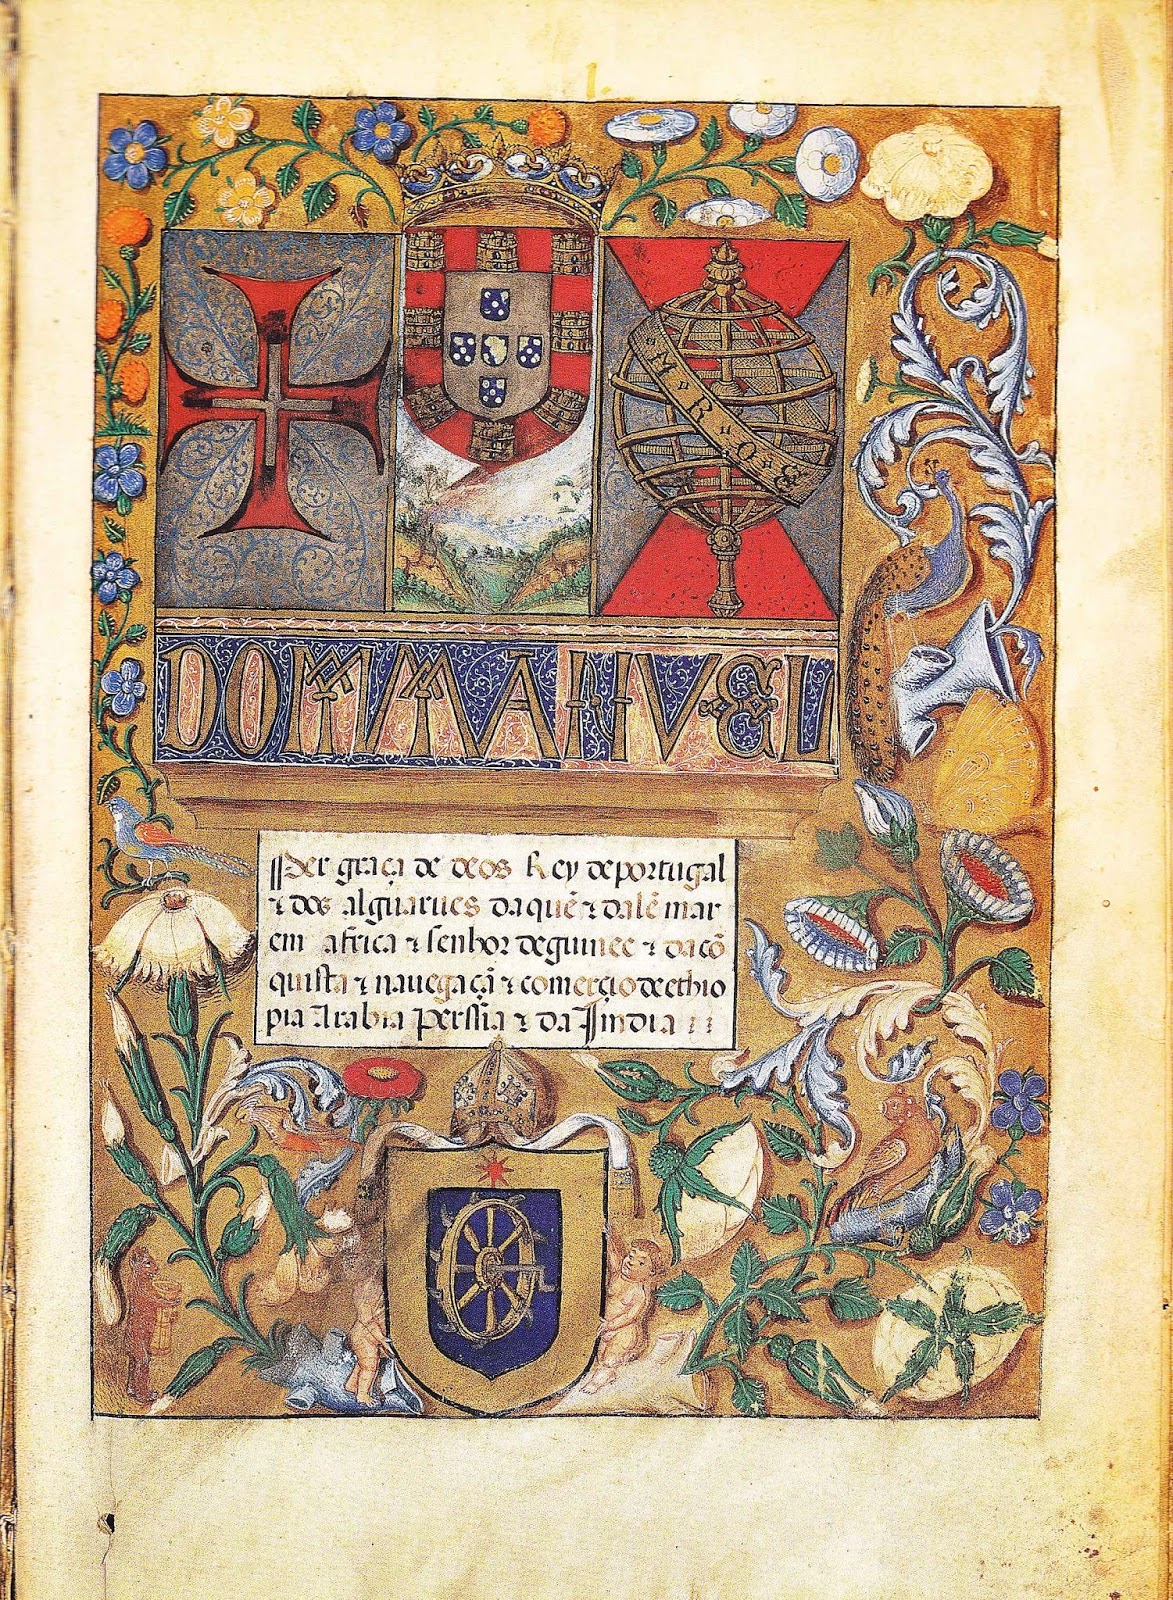 M · R · O · G
DOM MANVEL
Per graça de deos Rey de portugal
⁊ dos alguarues daquẽ ⁊ dalẽ mar
em africa ⁊ senhor de guinee ⁊ da cõ
quista ⁊ nauegaçã ⁊ comerçio de ethio
pia Arabia persia ⁊ da Jindia